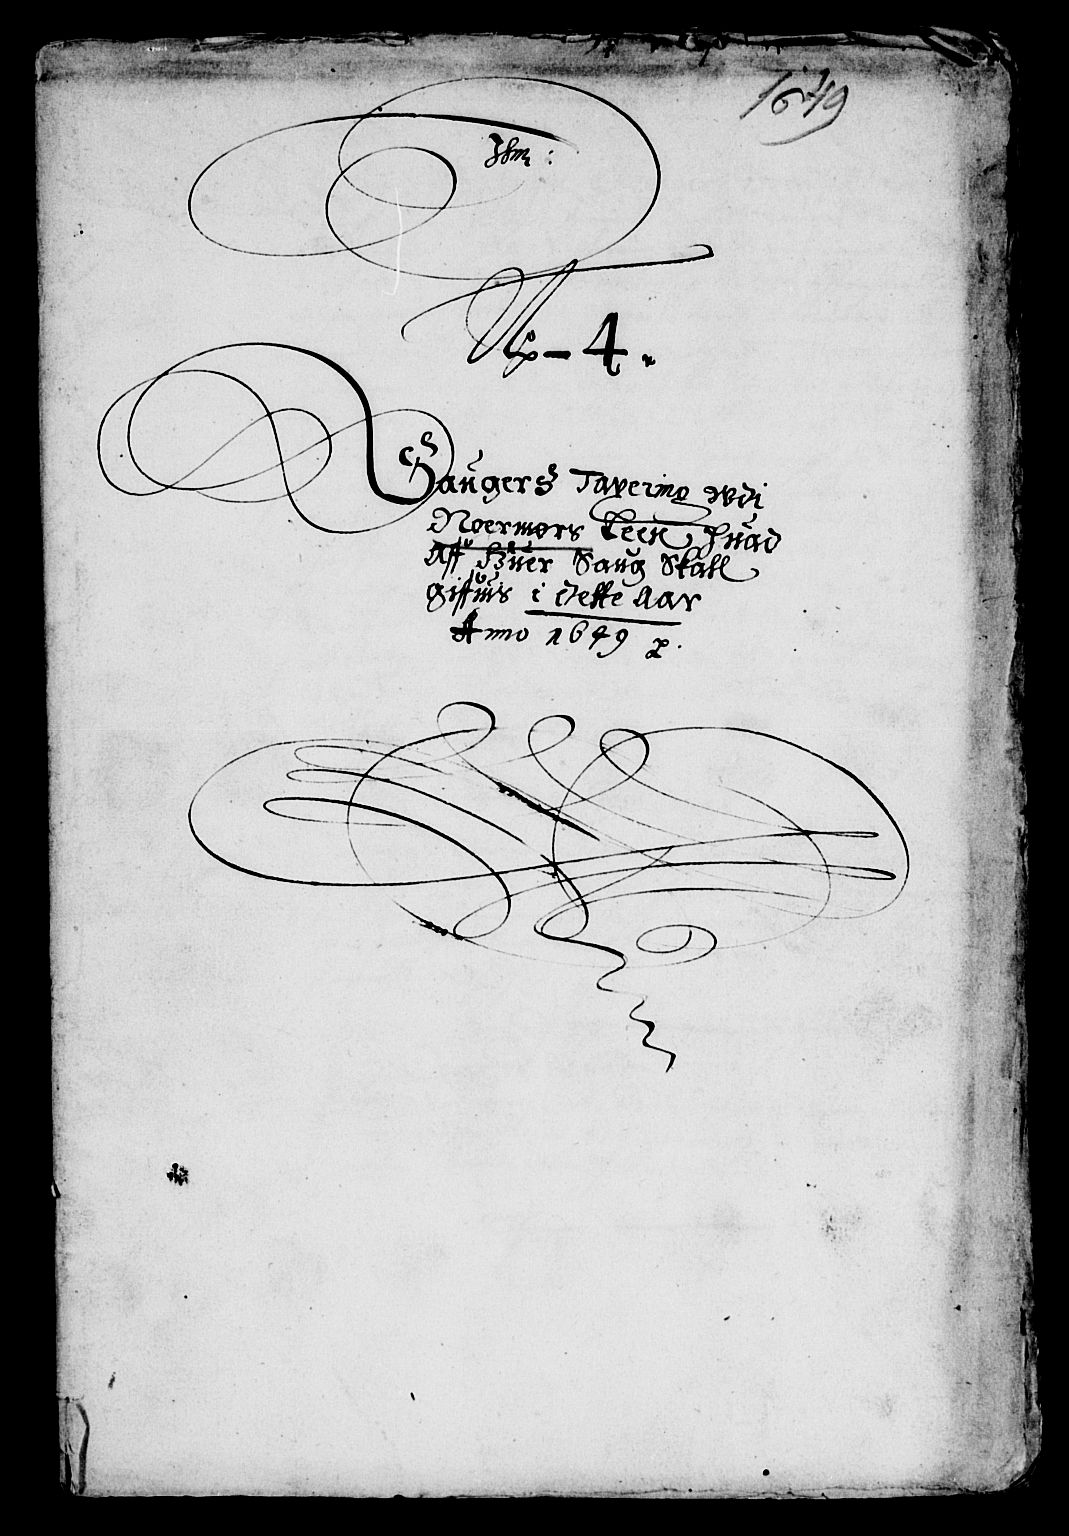 1649
Nr - 4.
Saugers Taxering wdi
Noermørs Leen huad
Aff huer Saug Skall
giffuis i dette Aar
Anno 1649